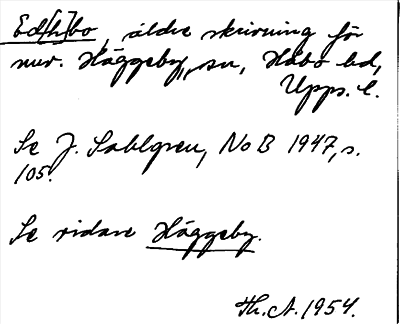 Ed[h]bo, äldre skrivning för
nuv. Häggeby, sn, Håbo hd,
Upps. l.
Se J. Sahlgren, NoB 1947, s.
105.
Se vidare Häggeby.
Th. A. 1954.